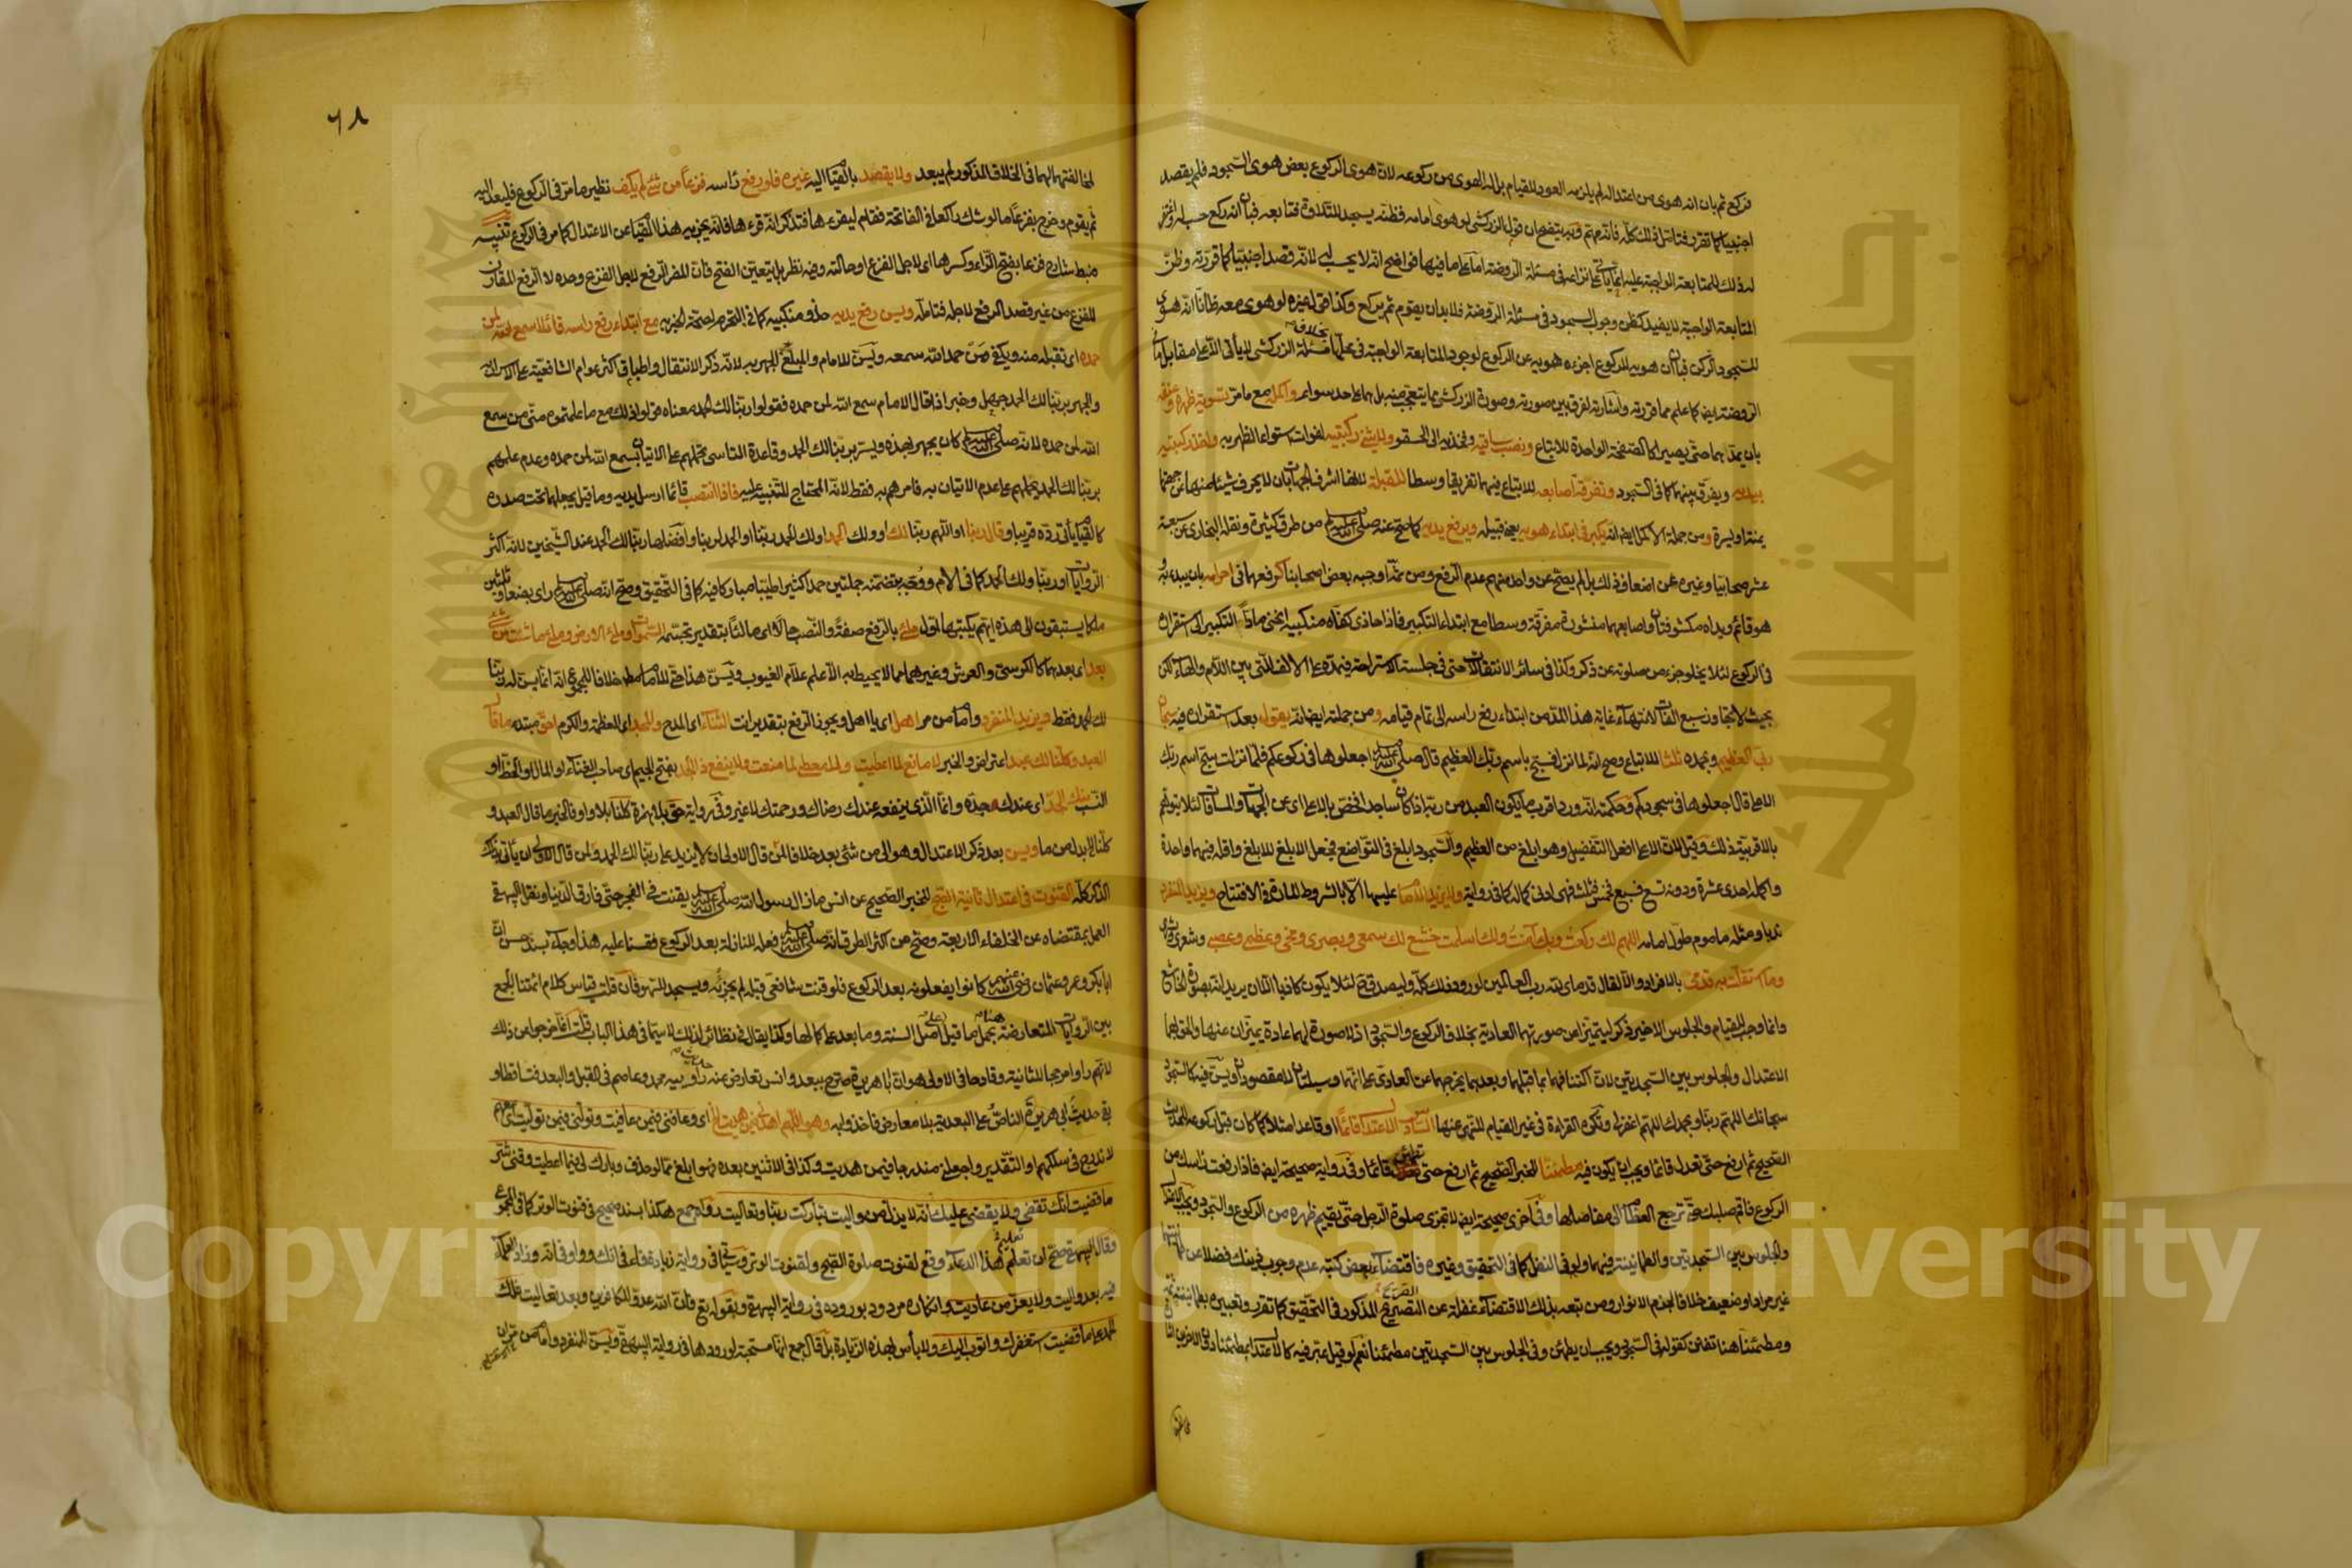 فركع ثم بان انه هوى من اعتداله لم يلزمه العود للقيام بل له الهوى من ركوعه لان هوى الركوع بعض هوى السجود فلم يقصد
اجنبيا كما تقرر فتامل ذلك كله فانه مهم وبه يتضح ان قول الزركشى لو هوى امامه فظنه يسجد للتلاوة فتابعه فبان انه ركع حسب له واغتفر
المتابعة الواجبة لا يفيد كظن وجوب السجود فى مسئلة الروضة فلا بد ان يقوم ثم يركع وكذا قول غيره لو هوى معه ظانا انه هوى
للسجود الركن فبان ان هويه للركوع اجزءه هويه عن الركوع لوجود المتابعة الواجبة فى محلها
بان يمدهما حتى يصيرا كالصفيحة الواحدة للاتباع ونصب ساقيه وفخذيه الى الحقو ولا يثنى ركبتيه لفوات استواء الظهر به واخذ ركبتيه
بيديه ويفرق بينهما كما فى السجود وتفرقة اصابعه للاتباع فيهما تفريقا وسطا للقبلة لانها اشرف الجهات بان لا يحرف شيئا منها عن جهتها
يمنة او يسرة ومن جملة الاكمل ايضا انه يكبر فى ابتداء هويه يعنى قبيله ويرفع يديه كما صح عنه صلى الله عليه وسلم من طرق كثيرة ونقله البخارى عن سبعة
عشر صحابيا وغيره عن اضعاف ذلك بل لم يصح عن واحد منهم عدم الرفع ومن ثمة اوجبه بعض اصحابنا كرفعهما فى احرامه بان يبدء به و
هو قائم ويداه مكشوفتان واصابعهما منشورة مفرقة وسطا مع ابتداء التكبير فاذا حاذى كفاه منكبيه انحنى مادا التكبير الى استقراره
فى الركوع لئلا يخلو جزء من صلوته عن ذكر وكذا فى سائر الانتقالات حتى فى جلسة الاستراحة فيمده على الالف التى بين اللام والهاء لكن
بحيث لا يتجاوز سبع الفات لانتهاء غاية هذا المد من ابتداء رفع راسه الى تمام قيامه ومن جملته ايضا انه يقول بعد استقراره فيه سبحان
ربى العظيم وبحمده ثلثا للاتباع وصح انه لما نزل فسبح باسم ربك العظيم قال صلى الله عليه وسلم اجعلوها فى ركوعكم فلما نزلت سبح اسم ربك
الاعلى قال اجعلوها فى سجودكم وحكمته انه ورد اقرب ما يكون العبد من ربه اذا كان ساجدا فخص بالاعلى اى عن الجهات والمسافات لئلا يتوهم
بالاقربية ذلك وقيل لان الاعلى افعل التفضيل وهو ابلغ من العظيم والسجود ابلغ فى التواضع فجعل الابلغ للابلغ واقله فيهما واحدة
واكمله احدى عشرة ودونه تسع فسبع فخمس فثلث فهى ادنى كماله كما فى رواية ولا يزيد الامام عليها الا بالشروط المارة فى الافتتاح ويزيد المنفرد
ندبا ومثله ماموم طول امامه اللهم لك ركعت وبك آمنت ولك اسلمت خشع لك سمعى وبصرى ومخى وعظمى وعصبى وشعرى وبشرى
وما استقلت به قدمى بالافراد والا لقال قدماى لله رب العالمين لورود ذلك كله وليصدق ح لئلا يكون كاذبا الا ان يريد انه بصورة الخاشع
وانما وجب للقيام والجلوس الاخير ذكر ليتميزا عن صورتهما العادية بخلاف الركوع والسجود اذ لا صورة لهما عادة يميزان عنها والحق بهما
الاعتدال والجلوس بين السجدتين لان اكتنافهما بما قبلهما وبعدهما يخرجهما عن العادى على انهما وسيلتان لا مقصودان ويسن فيه كالسجود
سبحانك اللهم ربنا وبحمدك اللهم اغفر لى وتكره القراءة فى غير القيام للنهى عنها السادس الاعتدال قائما او قاعدا مثلا كما كان قبل ركوعه للحديث
الصحيح ثم ارفع حتى تعدل قائما ويجب ان يكون فيه مطمئنا للخبر الصحيح ثم ارفع حتى تطمئن قائما وفى رواية صحيحة ايضا فاذا رفعت راسك من
الركوع فاقم صلبك حتى ترجع العظام الى مفاصلها وفى اخرى صحيحة ايضا لا تجزى صلوة الرجل حتى يقيم ظهره من الركوع والسجود ويجب الاعتدال
والجلوس بين السجدتين والطمانينة فيهما ولو فى النفل كما فى التحقيق وغيره فاقتضاء بعض كتبه عدم وجوب ذينك فضلا عن طمانينتهما
غير مراد او ضعيف خلافا لجزم الانوار ومن تبعه بذلك الاقتضاء غفلة عن التصريح المذكور فى التحقيق كما تقرر وتعبيره
ومطمئنا هنا تفنن كقوله فى السجود ويجب ان يطمئن وفى الجلوس بين السجدتين مطمئنا نعم لو قيل عبر فيه كالاعتدال بمطمئنا دون الاخرين
٦٨
لمخالفتهما لها فى الخلاف المذكور لم يبعد ولا يقصد بالقيام اليه غيره فلو رفع راسه فزعا من شئ لم يكف نظير ما مر فى الركوع فليعد اليه
ثم يقوم وخرج بفزعا ما لو شك راكعا فى الفاتحة فقام ليقرءها فتذكر انه قرءها فانه يجزيه هذا القيام عن الاعتدال كما مر فى الركوع تنبيه
ضبط شارح فزعا بفتح الزاء وكسرها اى لاجل الفزع او حالته وفيه نظر بل يتعين الفتح فان المضر الرفع لاجل الفزع وحده لا الرفع المقارن
للفزع من غير قصد الرفع لاجله فتامله ويسن رفع يديه حذو منكبيه كما فى التحرم لصحة الخبر به مع ابتداء رفع راسه قائلا سمع الله لمن
حمده اى تقبله منه ويكفى من حمد الله سمعه ويسن للامام والمبلغ الجهر به لانه ذكر الانتقال واطباق اكثر عوام الشافعية على الاسرار به
والجهر بربنا لك الحمد جهل وخبر اذا قال الامام سمع الله لمن حمده فقولوا ربنا لك الحمد معناه قولوا ذلك مع ما علمتموه منى من سمع
الله لمن حمده لانه صلى الله عليه وسلم كان يجهر بهذه ويسر بربنا لك الحمد وقاعدة التاسى تحملهم على الاتيان بسمع الله لمن حمده وعدم علمهم
بربنا لك الحمد يحملهم على عدم الاتيان به فامرهم به فقط لانه المحتاج للتنبيه عليه فاذا انتصب قائما ارسل يديه وما قيل يجعلهما تحت صدره
كالقيام يأتى رده قريبا وقال ربنا او اللهم ربنا لك او ولك الحمد او لك الحمد ربنا او الحمد لربنا وافضلها ربنا لك الحمد عند الشيخين لانه اكثر
الروايات او ربنا ولك الحمد كما فى الام ووجه بتضمنه جملتين حمدا كثيرا طيبا مباركا فيه كما فى التحقيق وصح انه صلى الله عليه وسلم راى بضعا وثلثين
ملكا يستبقون الى هذه ايهم يكتبها اول ملء بالرفع صفة والنصب حالا اى مالئا بتقدير تجسمه السموات وملء الارض وملء ما شئت من شئ
بعد اى بعدهما كالكرسى والعرش وغيرهما مما لا يحيط به الا علم علام الغيوب ويسن هذا حتى للامام مطلقا خلافا للمجموع انه انما يسن له ربنا
لك الحمد فقط ويزيد المنفرد وامام من مر اهل اى يا اهل ويجوز الرفع بتقدير انت الثناء اى المدح والمجد اى العظمة والكرم احق مبتدء ما قال
العبد وكلنا لك عبد اعتراض والخبر لا مانع لما اعطيت ولا معطى لما منعت ولا ينفع ذا الجد بفتح الجيم اى صاحب الغناء او المال او الحظ او
النسب منك الجد اى عندك جده وانما الذى ينفعه عندك رضاك ورحمتك لا غير وفى رواية حق بلا همزة كلنا بلا واو فالخبر ما قال العبد و
كلنا الخ بدل من ما ويسن بعد ذكر الاعتدال وهو الى من شئ بعد خلافا لمن قال الاولى ان لا يزيد على ربنا لك الحمد ولمن قال الاولى ان يأتى بذلك
الذكر كله القنوت فى اعتدال ثانية الصبح للخبر الصحيح عن انس ما زال رسول الله صلى الله عليه وسلم يقنت فى الفجر حتى فارق الدنيا ونقل البيهقى
العمل بمقتضاه عن الخلفاء الاربعة وصح من اكثر الطرق انه صلى الله عليه وسلم فعله للنازلة بعد الركوع فقسنا عليه هذا وجاء بسند حسن ان
ابا بكر وعمر وعثمان رضى الله عنهم كانوا يفعلونه بعد الركوع فلو قنت شافعى قبله لم يجزئه ويسجد للسهو فان قلت قياس كلام ائمتنا الجمع
بين الروايات المتعارضة هنا بحمل ما قبل على اصل السنة وما بعد على كمالها وكذا يقال فى نظائر لذلك لا سيما فى هذا الباب قلت انما خرجوا عن ذلك
لانهم راوا مرجحا للثانية وقادحا فى الاولى هو ان ابا هريرة صرح ببعد وانس تعارض عنه حديث راوييه محمد وعاصم فى القبل والبعد فتساقطا و
بقى حديث ابى هريرة الناص على البعدية بلا معارض فاخذوا به وهو اللهم اهدنى فيمن هديت الخ اى وعافنى فيمن عافيت وتولنى فيمن توليت اى معهم
لاندرج فى سلكهم او التقدير واجعلنى مندرجا فيمن هديت وكذا فى الاثنين بعده فهو ابلغ مما لو حذف وبارك لى فيما اعطيت وقنى شر
ما قضيت انك تقضى ولا يقضى عليك انه لا يذل من واليت تباركت ربنا وتعاليت رواه جمع هكذا بسند صحيح فى قنوت الوتر كما فى المجموع
وقال البيهقى صح ان تعليم هذا الدعاء وقع لقنوت صلوة الصبح ولقنوت الوتر وسيأتى فى رواية زيادة فاء فى انك وواو فى انه وزاد العلماء
فيه بعد واليت ولا يعز من عاديت وانكاره مردود بوروده فى رواية البيهقى وبقوله تع فان الله عدو للكافرين وبعد تعاليت فلك
الحمد على ما قضيت استغفرك واتوب اليك ولا بأس بهذه الزيادة بل قال جمع انها مستحبة لورودها فى رواية البيهقى ويسن للمنفرد وامام من مر ان